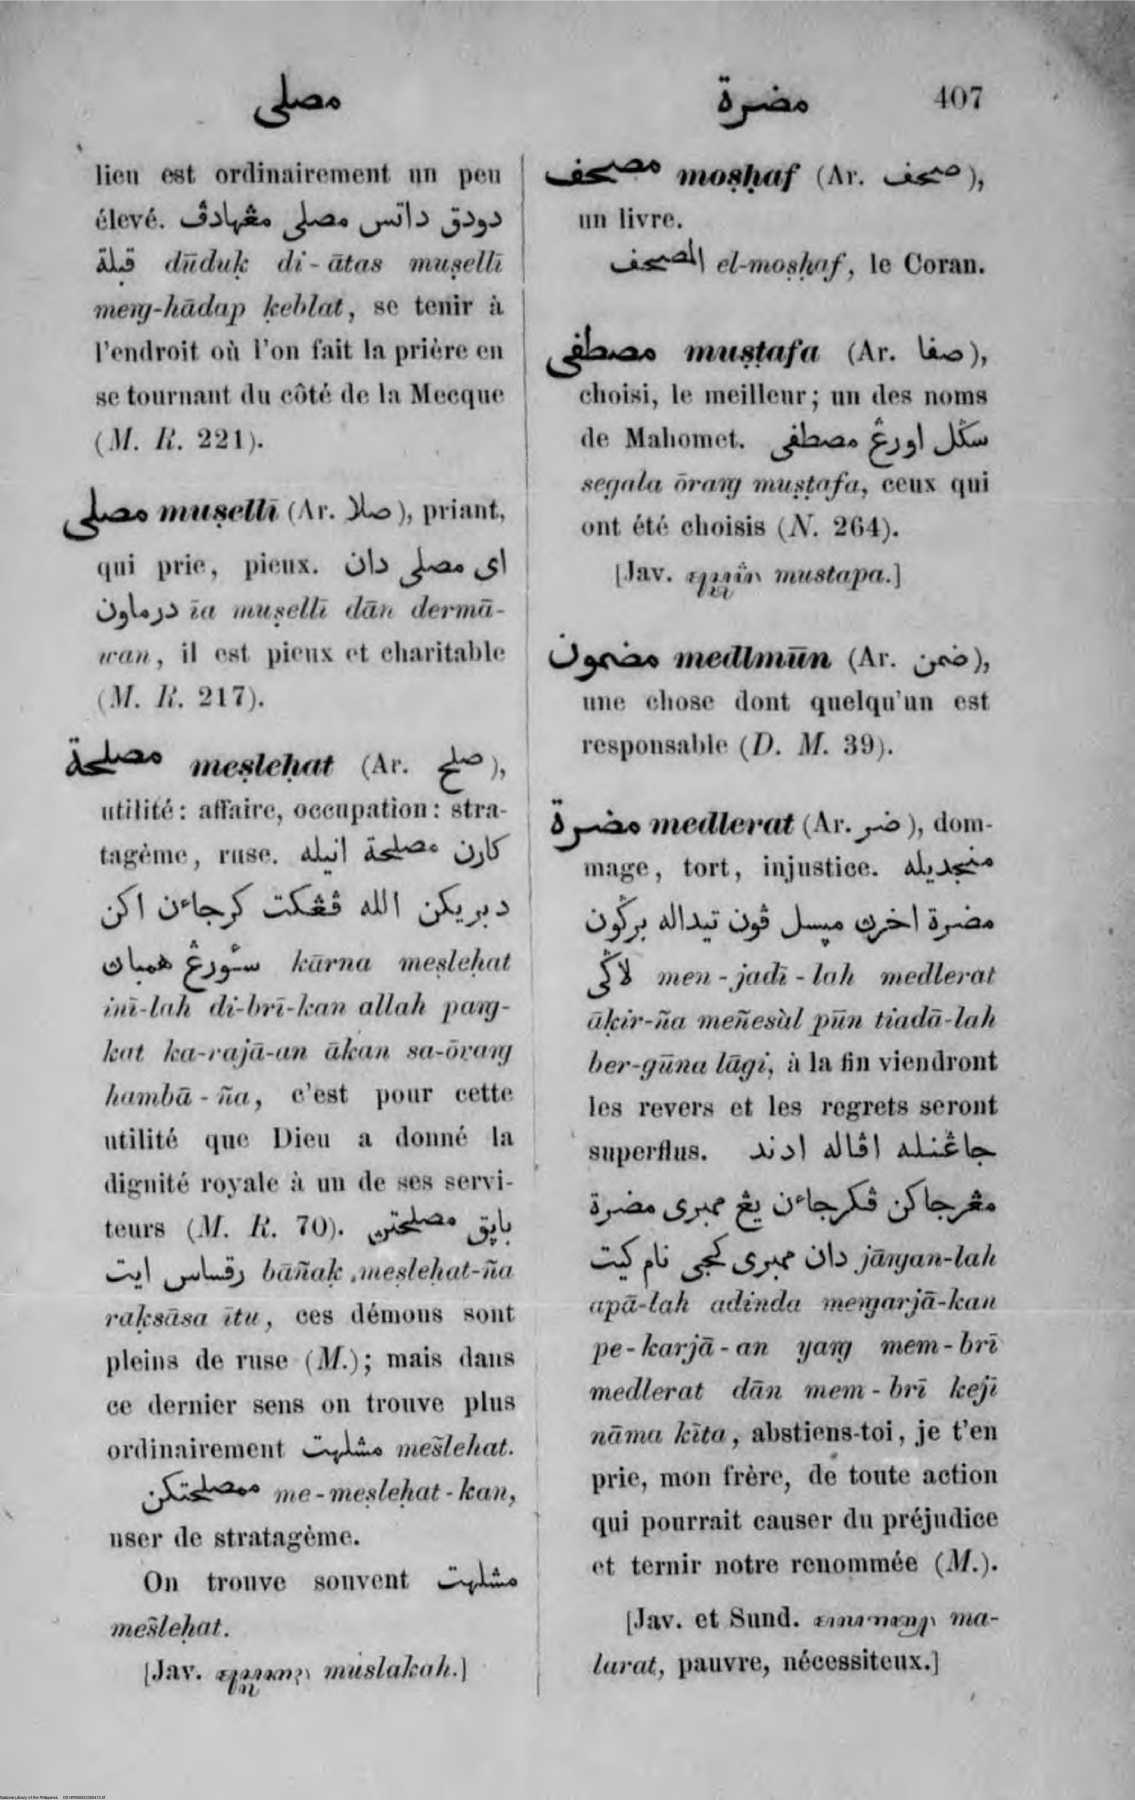 مصلى
مضرة
407
lieu est ordinairement un peu
élevé. دودق داتس مصلى مڠهادڤ
قبلة dūduḳ di-ātas muṣellī
meng-hādap ḳeblat, se tenir à
l'endroit où l'on fait la prière en
se tournant du côté de la Mecque
(M. R. 221).
مصلى muṣellī (Ar. صلا), priant,
qui prie, pieux. اى مصلى دان
درماون īa muṣellī dān dermā-
wan, il est pieux et charitable
(M. R. 217).
مصلحة meṣleḥat (Ar. صلح),
utilité: affaire, occupation: stra-
tagème, ruse. كارن مصلحة انيله
دبريكن الله ڤڠكت كرجاءن اكن
سئورڠ همبان kārna meṣleḥat
inī-lah di-brī-kan allah pang-
kat ka-rajā-an ākan sa-ōrang
hambā-ña, c'est pour cette
utilité que Dieu a donné la
dignité royale à un de ses servi-
teurs (M. R. 70). باڽق مصلحتڽ
رقساس ايت bāñaḳ meṣleḥat-ña
raḳsāsa ītu, ces démons sont
pleins de ruse (M.); mais dans
ce dernier sens on trouve plus
ordinairement مشلهت mešlehat.
ممصلحتكن me-meṣleḥat-kan,
user de stratagème.
On trouve souvent مشلهت
mešleḥat.
[Jav. muslakah.]
مصحف moṣḥaf (Ar. صحف),
un livre.
المصحف el-moṣḥaf, le Coran.
مصطفى muṣṭafa (Ar. صفا),
choisi, le meilleur; un des noms
de Mahomet. سگل اورڠ مصطفى
segala ōrang muṣṭafa, ceux qui
ont été choisis (N. 264).
[Jav. mustapa.]
مضمون medlmūn (Ar. ضمن),
une chose dont quelqu'un est
responsable (D. M. 39).
مضرة medlerat (Ar. ضر), dom-
mage, tort, injustice. منجديله
مضرة اخرڽ مڽسل ڤون تيداله برگون
لاگى men-jadī-lah medlerat
āḳir-ña meñesùl pūn tiadā-lah
ber-gūna lāgi, à la fin viendront
les revers et les regrets seront
superflus. جاڠنله اڤاله ادند
مڠرجاكن ڤكرجاءن يڠ ممبرى مضرة
دان ممبرى كجى نام كيت jāngan-lah
apā-lah adinda mengarjā-kan
pe-karjā-an yang mem-brī
medlerat dān mem-brī kejī
nāma kīta, abstiens-toi, je t'en
prie, mon frère, de toute action
qui pourrait causer du préjudice
et ternir notre renommée (M.).
[Jav. et Sund. ma-
larat, pauvre, nécessiteux.]